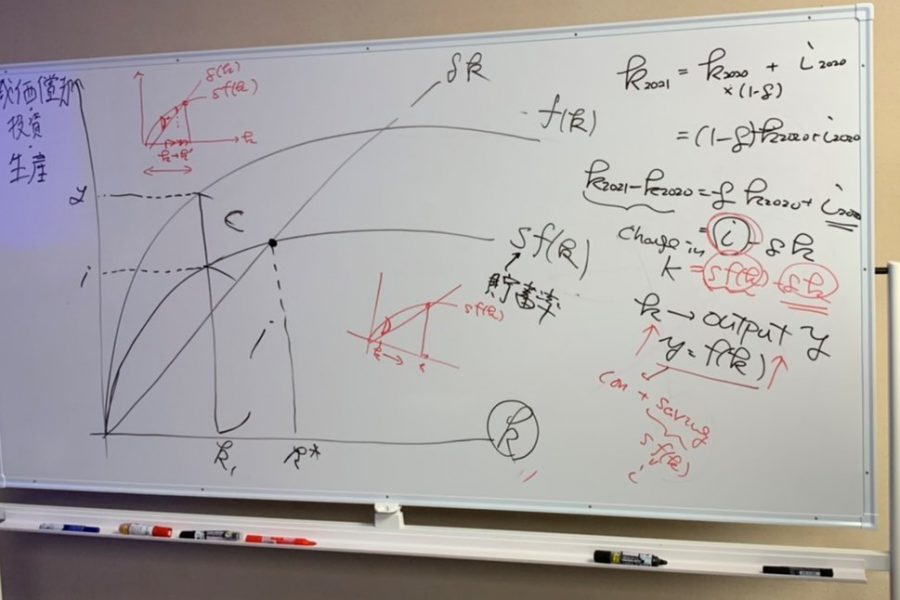 減価償却
投資
生産
y
i
δ(k)
sf(k)
k
k→k*
δk
f(k)
c
sf(k)
貯蓄率
i
sf(k)
k
k₁
k*
k
k2021 = k2020 + i2020
×(1-δ)
=(1-δ)k2020+i2020
k2021-k2020=-δ k2020+ i2020
change in k
= i - δk
= sf(k) - δk
k → output y
y=f(k)
con + saving
sf(k)
i